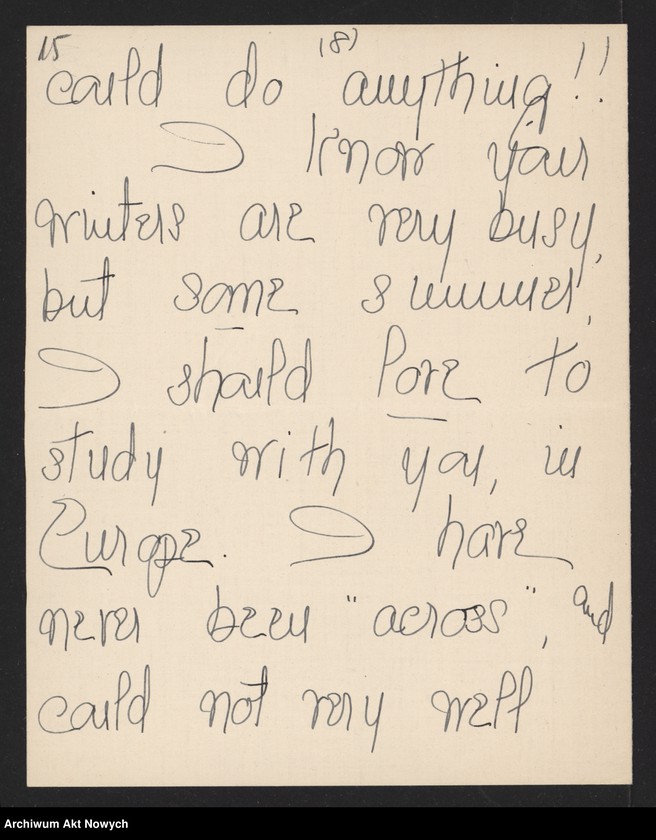 15
(8)
could do anything!!
I know your
winters are very busy,
but some summer,
I should love to
study with you, in
Europe. I have
never been "across", and
could not very well
Archiwum Akt Nowych